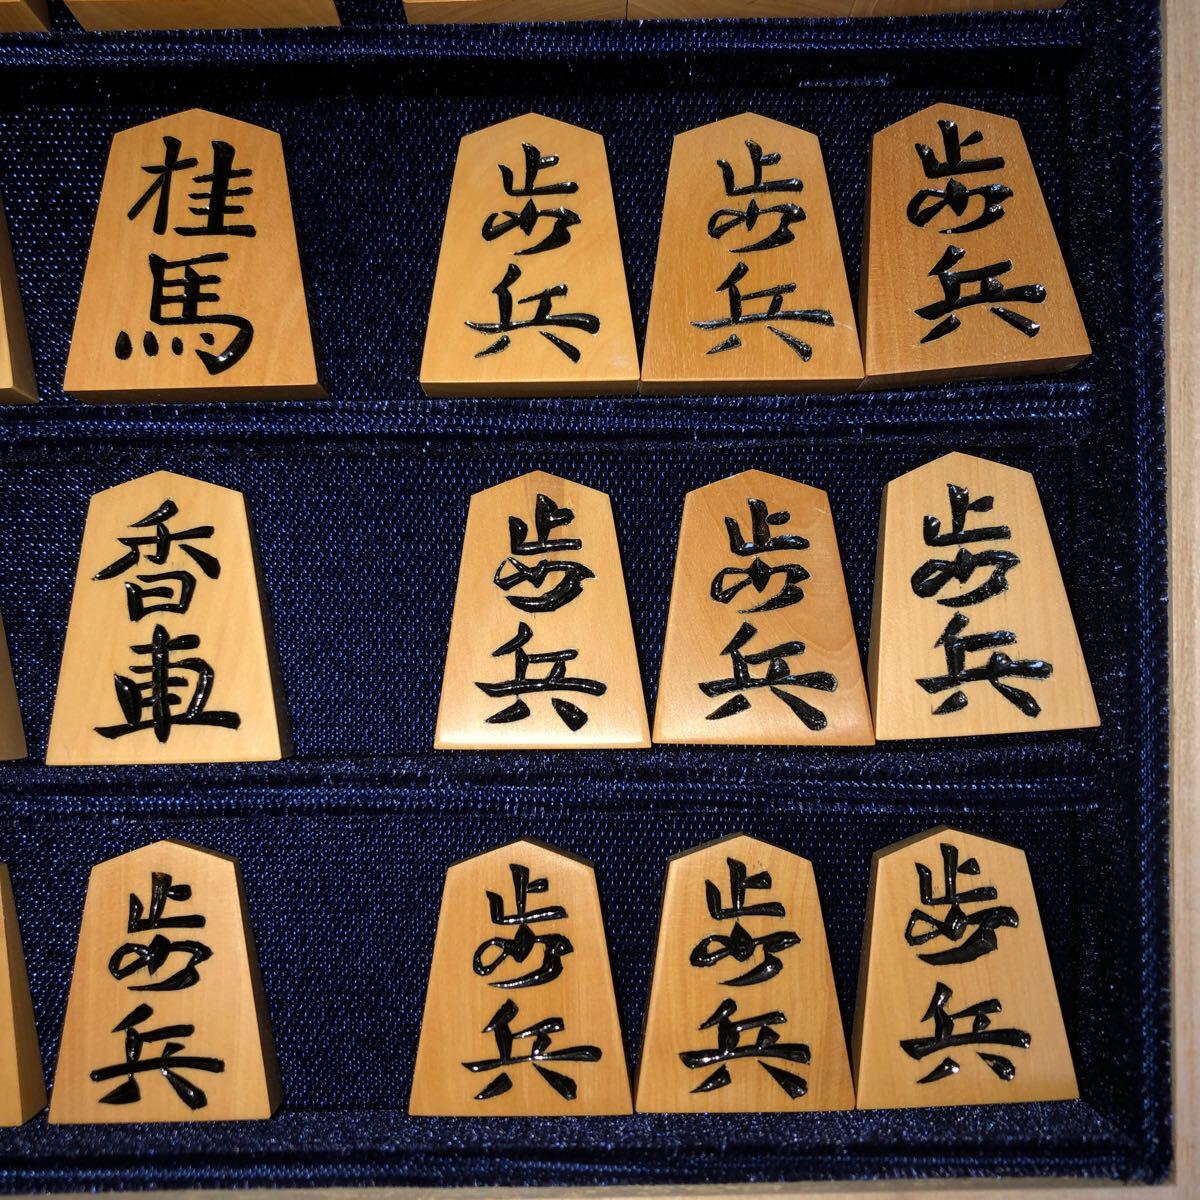 桂馬
歩兵
歩兵
歩兵
香車
歩兵
歩兵
歩兵
歩兵
歩兵
歩兵
歩兵